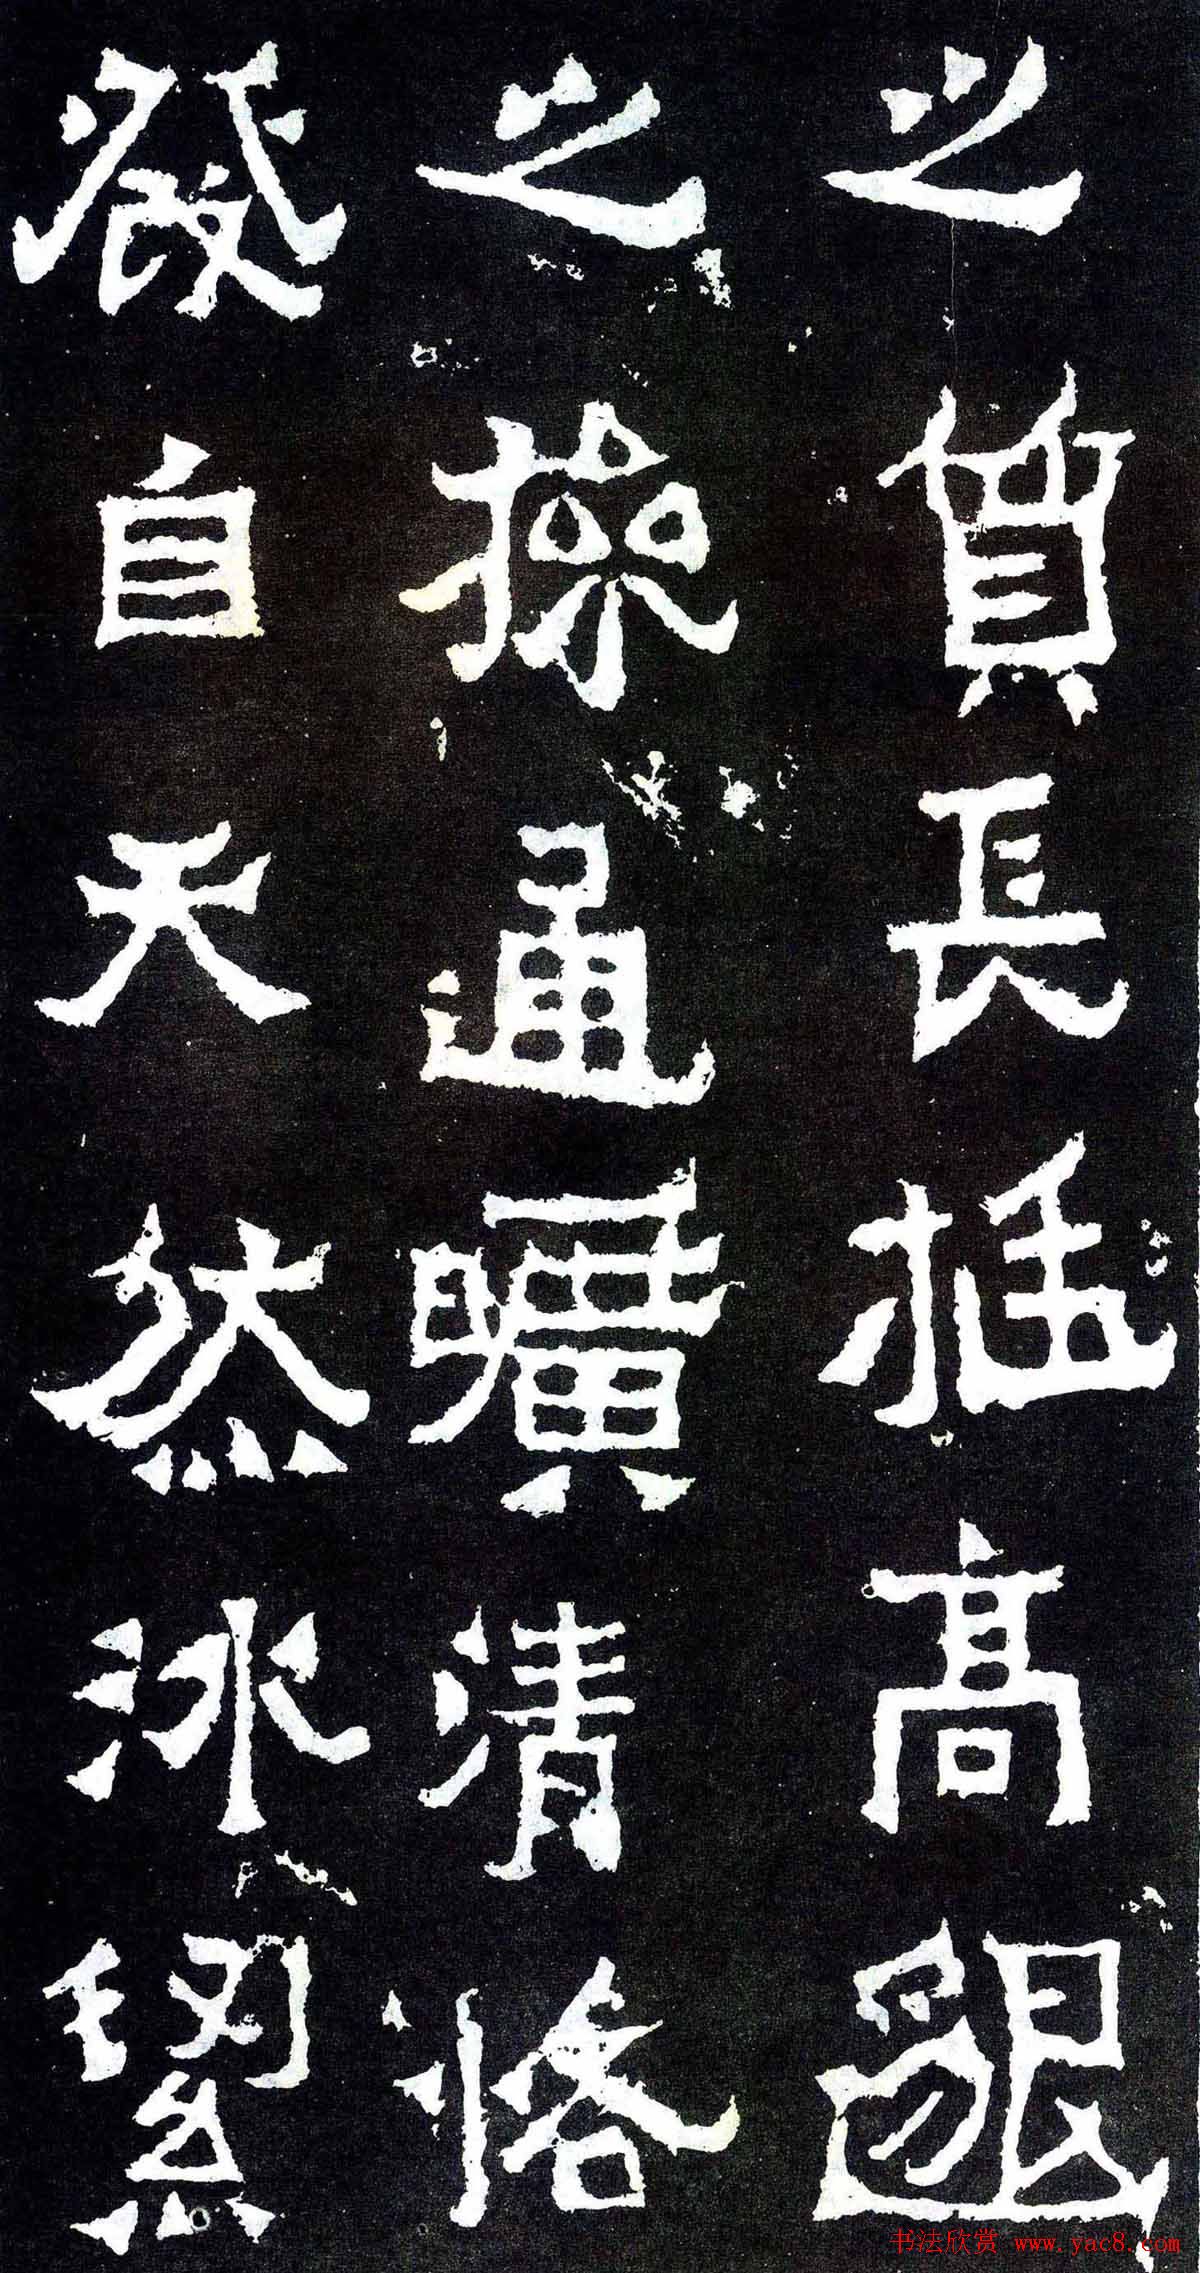 之質長挺高邈
之操通曠清恪
發自天然冰絜
书法欣赏 www.yac8.com